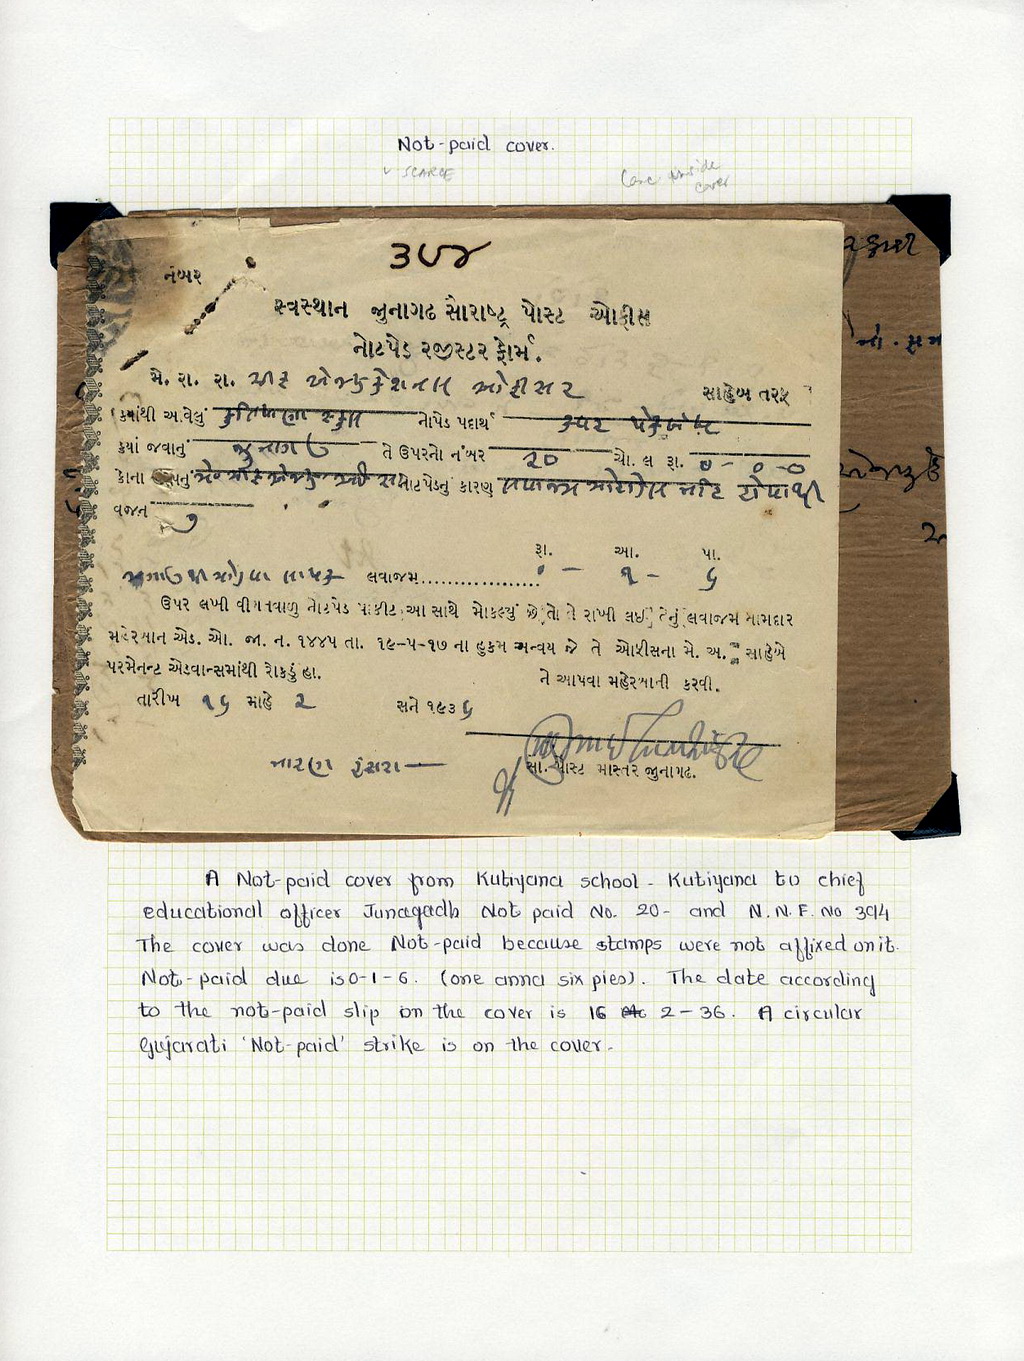 Not-paid cover.
v SCARCE
inside
cover
૩૯૪
નંબર
સ્વસ્થાન જુનાગઢ સૌરાષ્ટ્ર પોસ્ટ ઓફીસ
નોટપેડ રજીસ્ટર ફોર્મ.
મે. રા. રા. ચીફ એજ્યુકેશનલ ઓફીસર સાહેબ તરફ
કયાંથી આવેલું કુતિયાણા સ્કુલ નોપેડ પદાર્થ
કયાં જવાનું જુનાગઢ તે ઉપરનો નંબર ૨૦ ચો. લ રૂા. ૦-૦-૦
કોના નોટપેડનું કારણ
વજન
રૂા. આ. પા.
લવાજમ.................. ૦ - ૧ - ૬
ઉપર લખી વીગતવાળુ નોટપેડ પાકીટ આ સાથે મોકલ્યું છે તો તે રાખી લઈ તેનું લવાજમ નામદાર
મહેરબાન એડ. ઓ. જા. ન. ૧૪૪૫ તા. ૧૯-૫-૧૭ ના હુકમ અન્વય જે તે ઓફીસના મે. અ. સાહેબે
પરમેનન્ટ એડવાન્સમાંથી રોકડું હા. ને આપવા મહેરબાની કરવી.
તારીખ ૧૬ માહે ૨ સને ૧૯૩૬
સૌ. પોસ્ટ માસ્તર જુનાગઢ.
A Not-paid cover from Kutiyana school - Kutiyana to chief
educational officer Junagadh Not paid No. 20- and N.N.F. No 394
The cover was done Not-paid because stamps were not affixed on it.
Not-paid due is 0-1-6. (one anna six pies). The date according
to the not-paid slip on the cover is 16 2-36. A circular
Gujarati 'Not-paid' strike is on the cover.